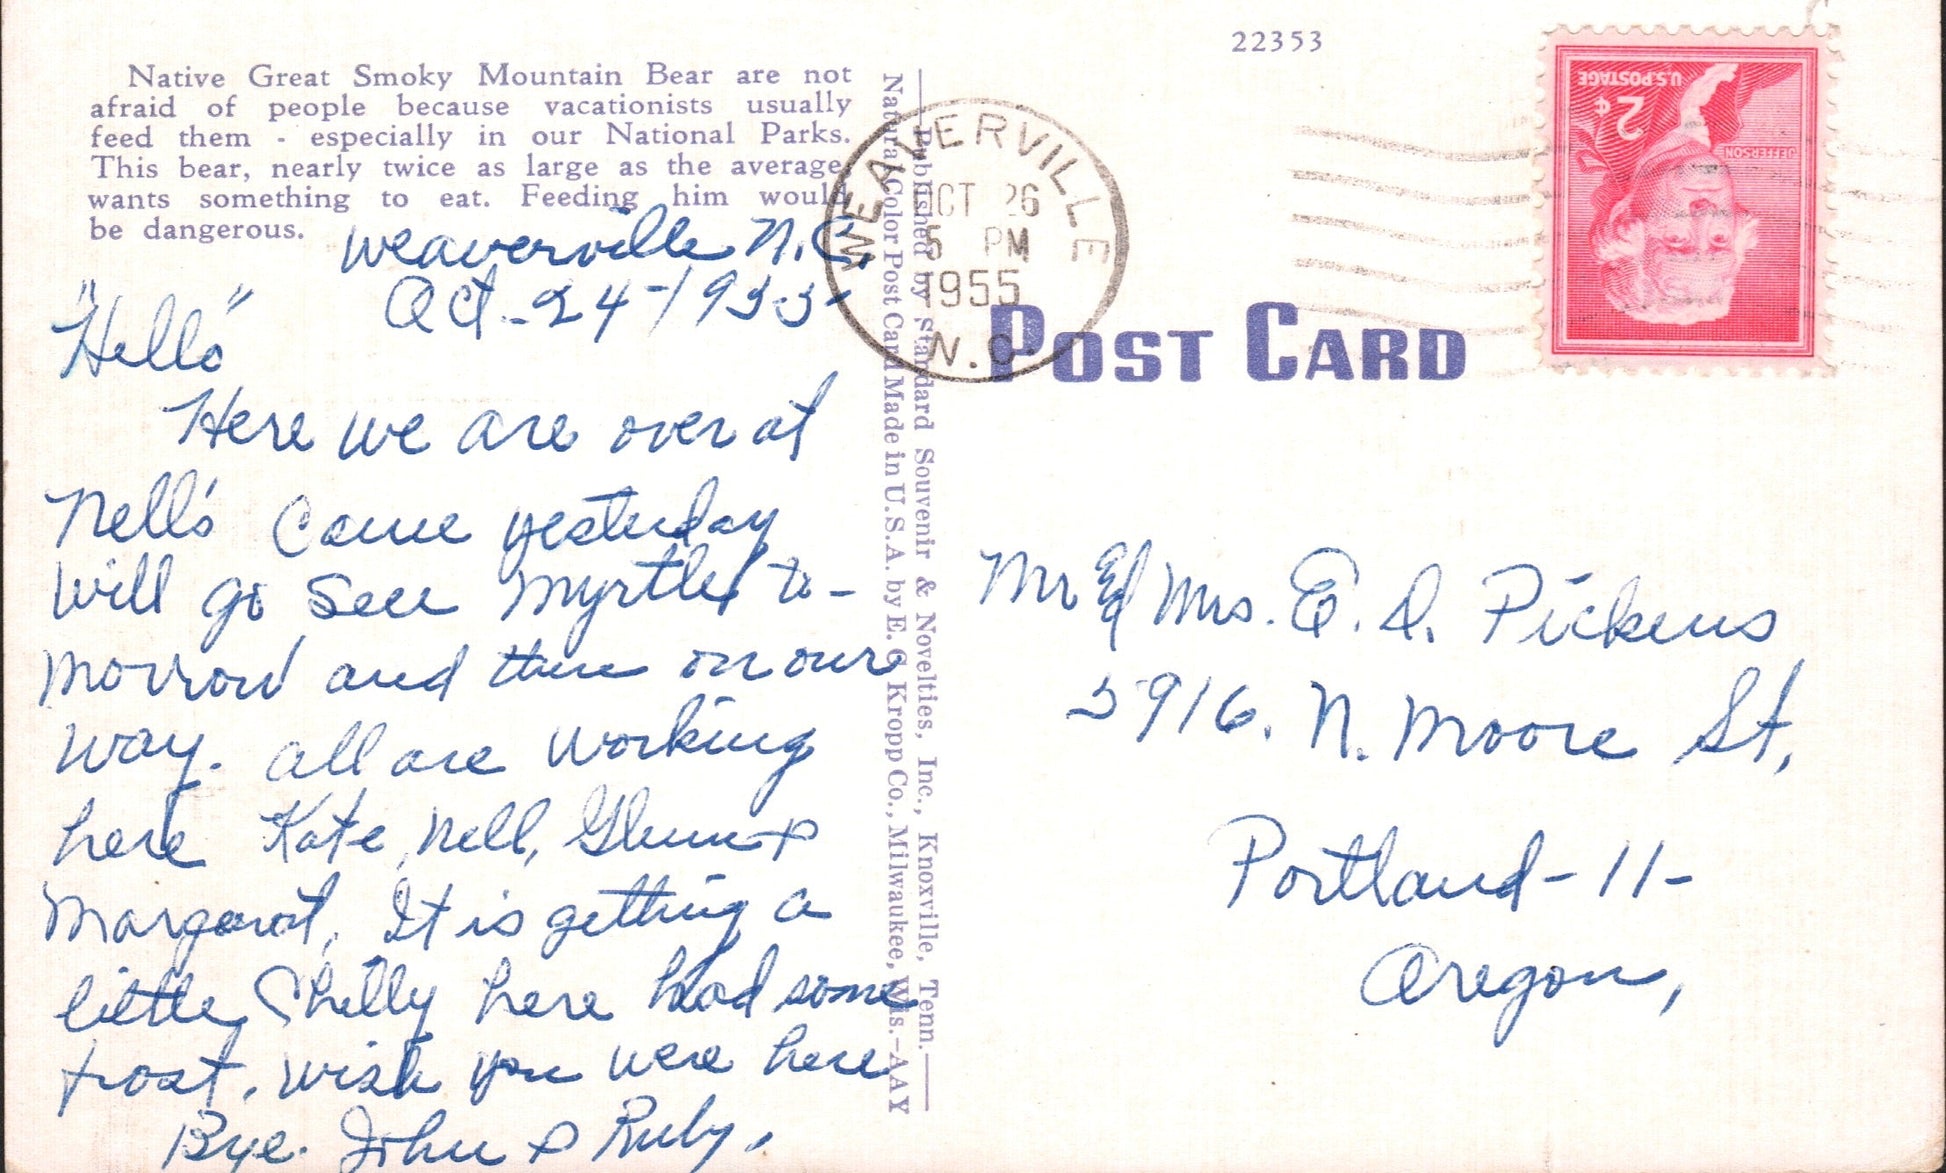 22353
Native Great Smoky Mountain Bear are not
afraid of people because vacationists usually
feed them - especially in our National Parks.
This bear, nearly twice as large as the average
wants something to eat. Feeding him would
be dangerous.
Weaverville N.C.
Oct-24-1955-
"Hello"
Here we are over at
Nell's Came yesterday
will go see Myrtle to-
morrow and then on our
way. all are working
here Kate, Nell, Glenn &
Margaret, It is getting a
little Chilly here had some
frost. wish you were here
Bye. John & Ruby.
Published by Standard Souvenir & Novelties, Inc., Knoxville, Tenn.
Natural Color Post Card Made in U.S.A. by E. C. Kropp Co., Milwaukee, Wis.-AAX
WEAVERVILLE
OCT 26
5 PM
1955
N.C.
POST CARD
U.S. POSTAGE
2¢
JEFFERSON
Mr & Mrs. E. D. Pickens
5916. N. Moore St,
Portland-11-
Oregon,